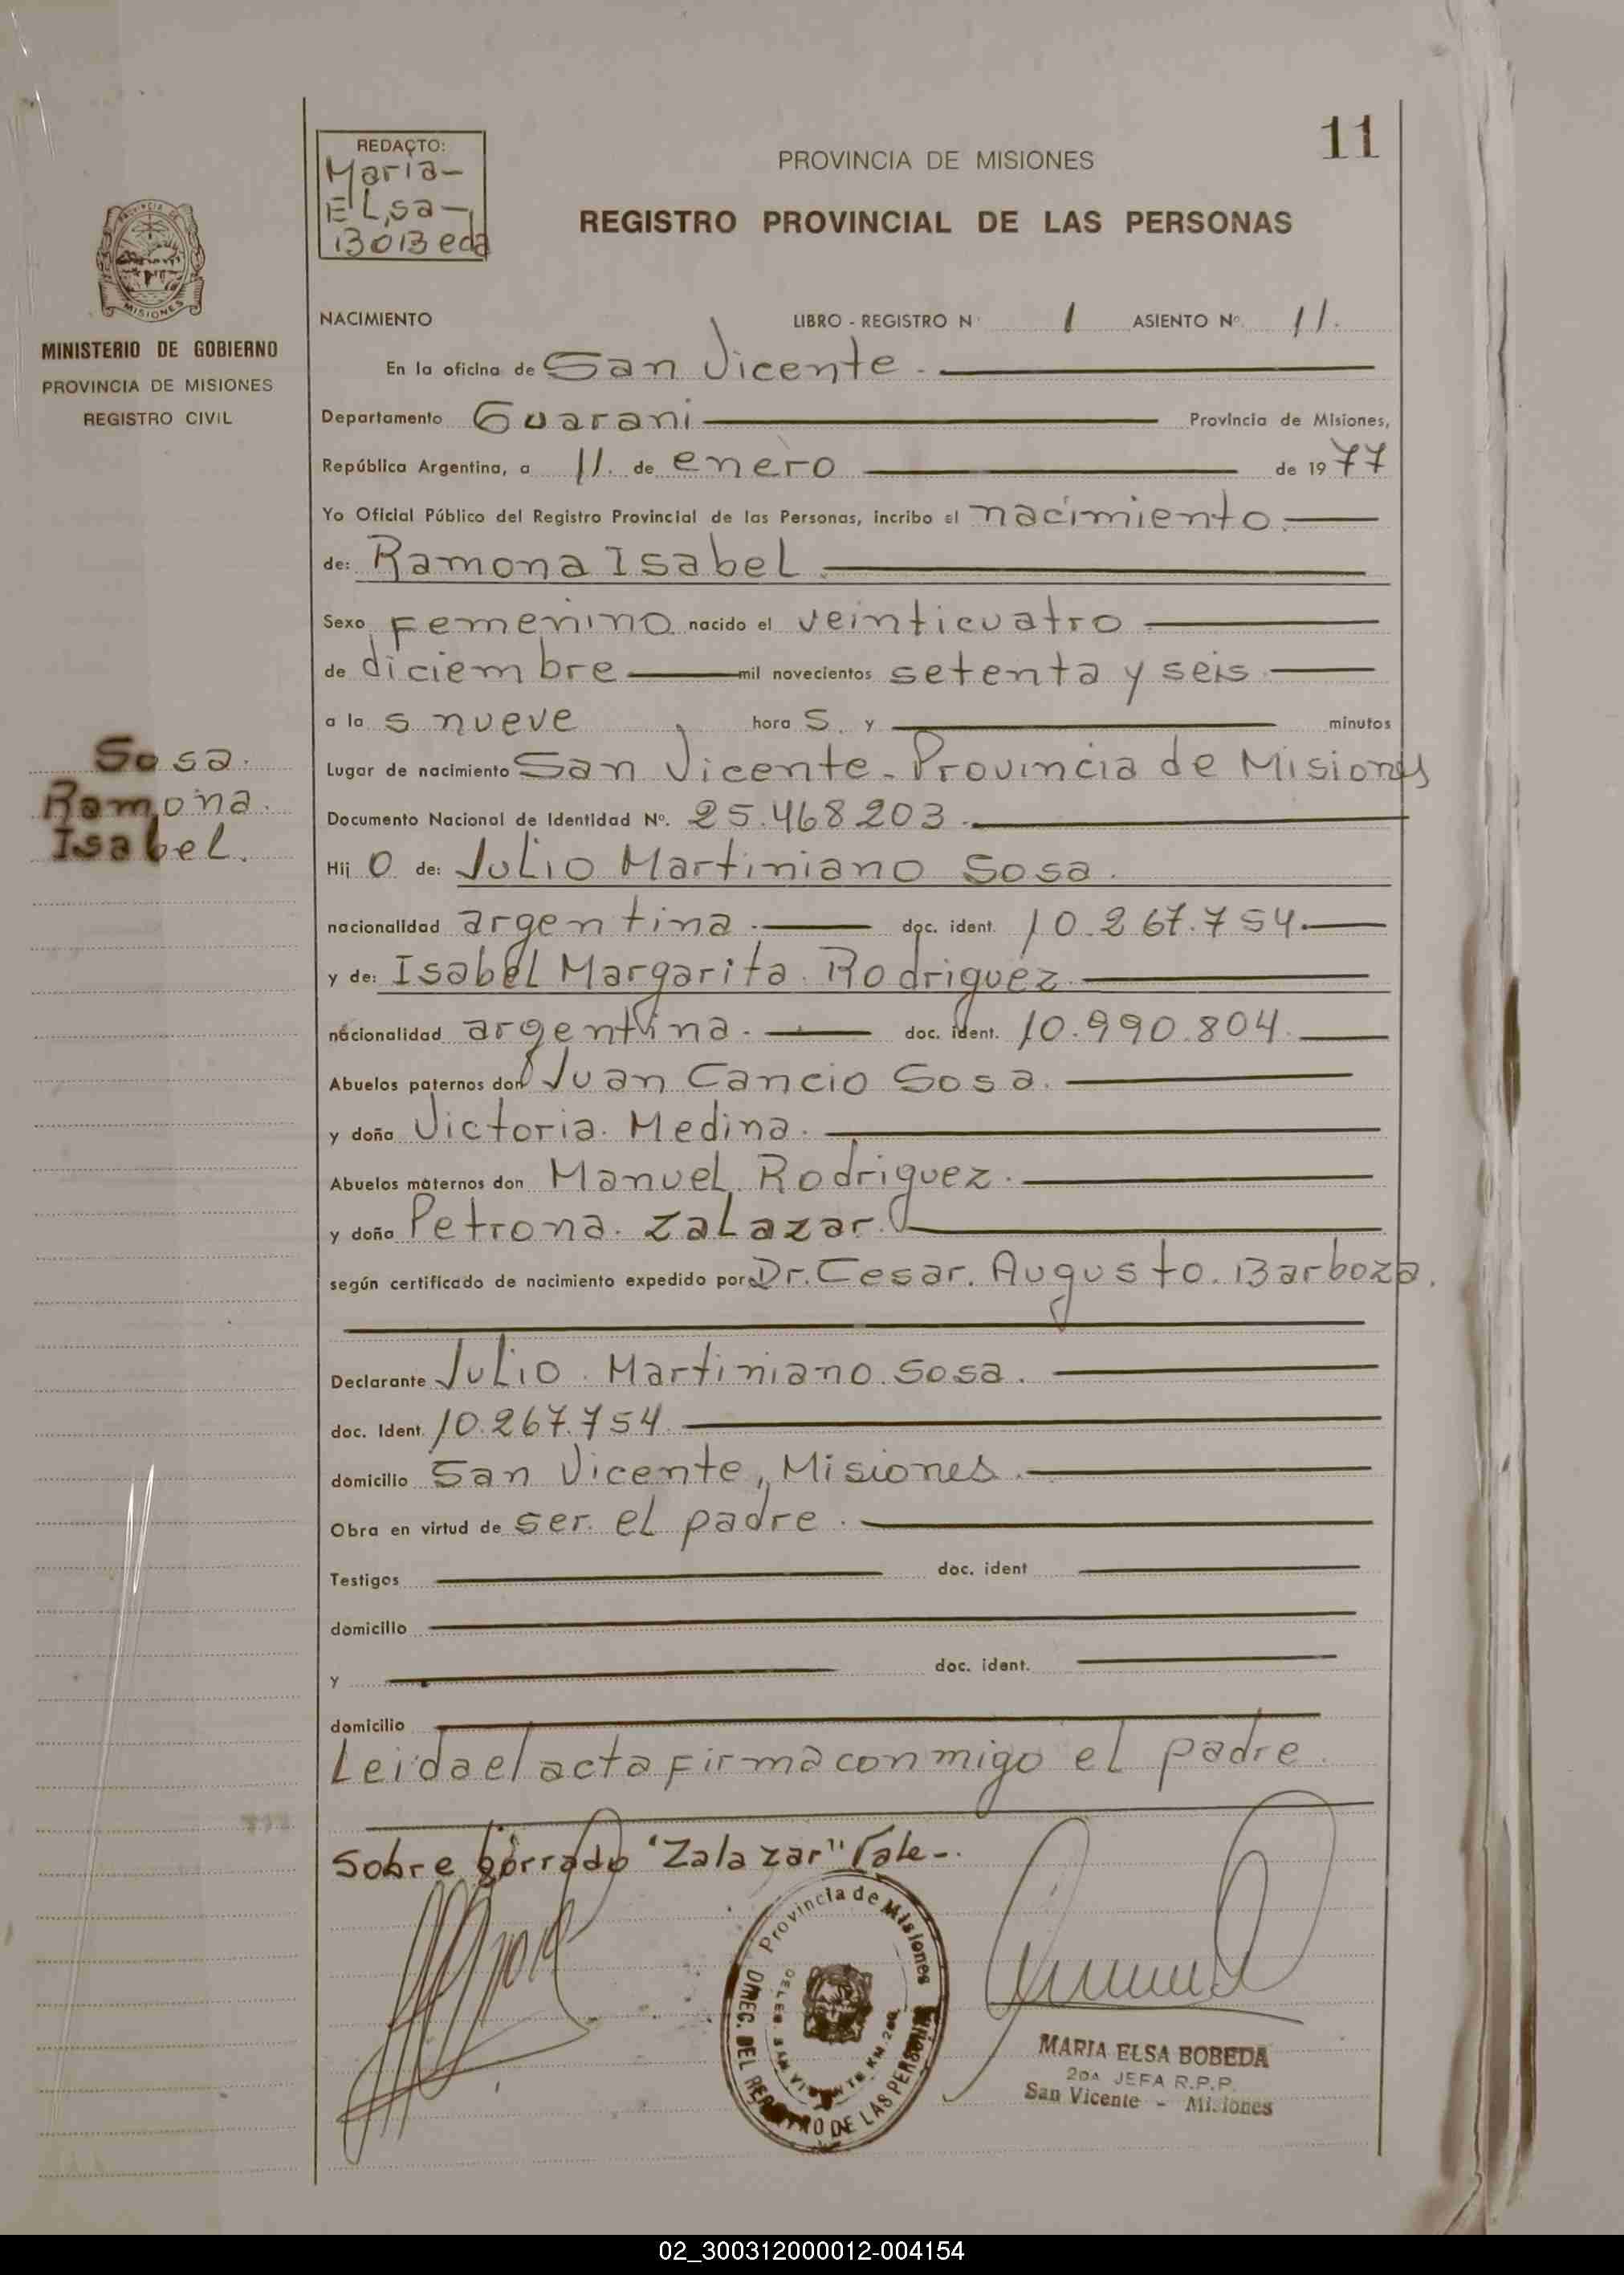 11
REDACTO:
Maria-
Elsa-
Bobeda
PROVINCIA DE MISIONES
REGISTRO PROVINCIAL DE LAS PERSONAS
PROVINCIA DE
MISIONES
MINISTERIO DE GOBIERNO
PROVINCIA DE MISIONES
REGISTRO CIVIL
NACIMIENTO LIBRO - REGISTRO Nº 1 ASIENTO Nº 11.
En la oficina de San Vicente.
Departamento Guarani Provincia de Misiones,
República Argentina, a 11. de enero de 1977
Yo Oficial Público del Registro Provincial de las Personas, incribo el nacimiento.
de: Ramona Isabel.
Sexo femenino nacido el veinticuatro
de diciembre mil novecientos setenta y seis.
a las nueve horas. y minutos
Lugar de nacimiento San Vicente - Provincia de Misiones
Documento Nacional de Identidad Nº. 25.468203.
Sosa.
Ramona.
Isabel.
Hijo de: Julio Martiniano Sosa.
nacionalidad argentina. doc. ident. 10.267.754.
y de: Isabel Margarita Rodriguez.
nacionalidad argentina. doc. ident. 10.990.804.
Abuelos paternos don Juan Cancio Sosa.
y doña Victoria Medina.
Abuelos maternos don Manuel Rodriguez.
y doña Petrona Zalazar.
según certificado de nacimiento expedido por Dr. Cesar. Augusto. Barboza.
Declarante Julio Martiniano Sosa.
doc. Ident. 10.267.754.
domicilio San Vicente, Misiones.
Obra en virtud de ser el padre.
Testigos doc. ident
domicilio
y doc. ident.
domicilio
Leida el acta firma conmigo el padre.
Sobre borrado "Zalazar" Vale-.
Provincia de Misiones
DIREC. DEL REGISTRO DE LAS PERSONAS
MARIA ELSA BOBEDA
2DA JEFA R.P.P.
San Vicente - Misiones
02_300312000012-004154